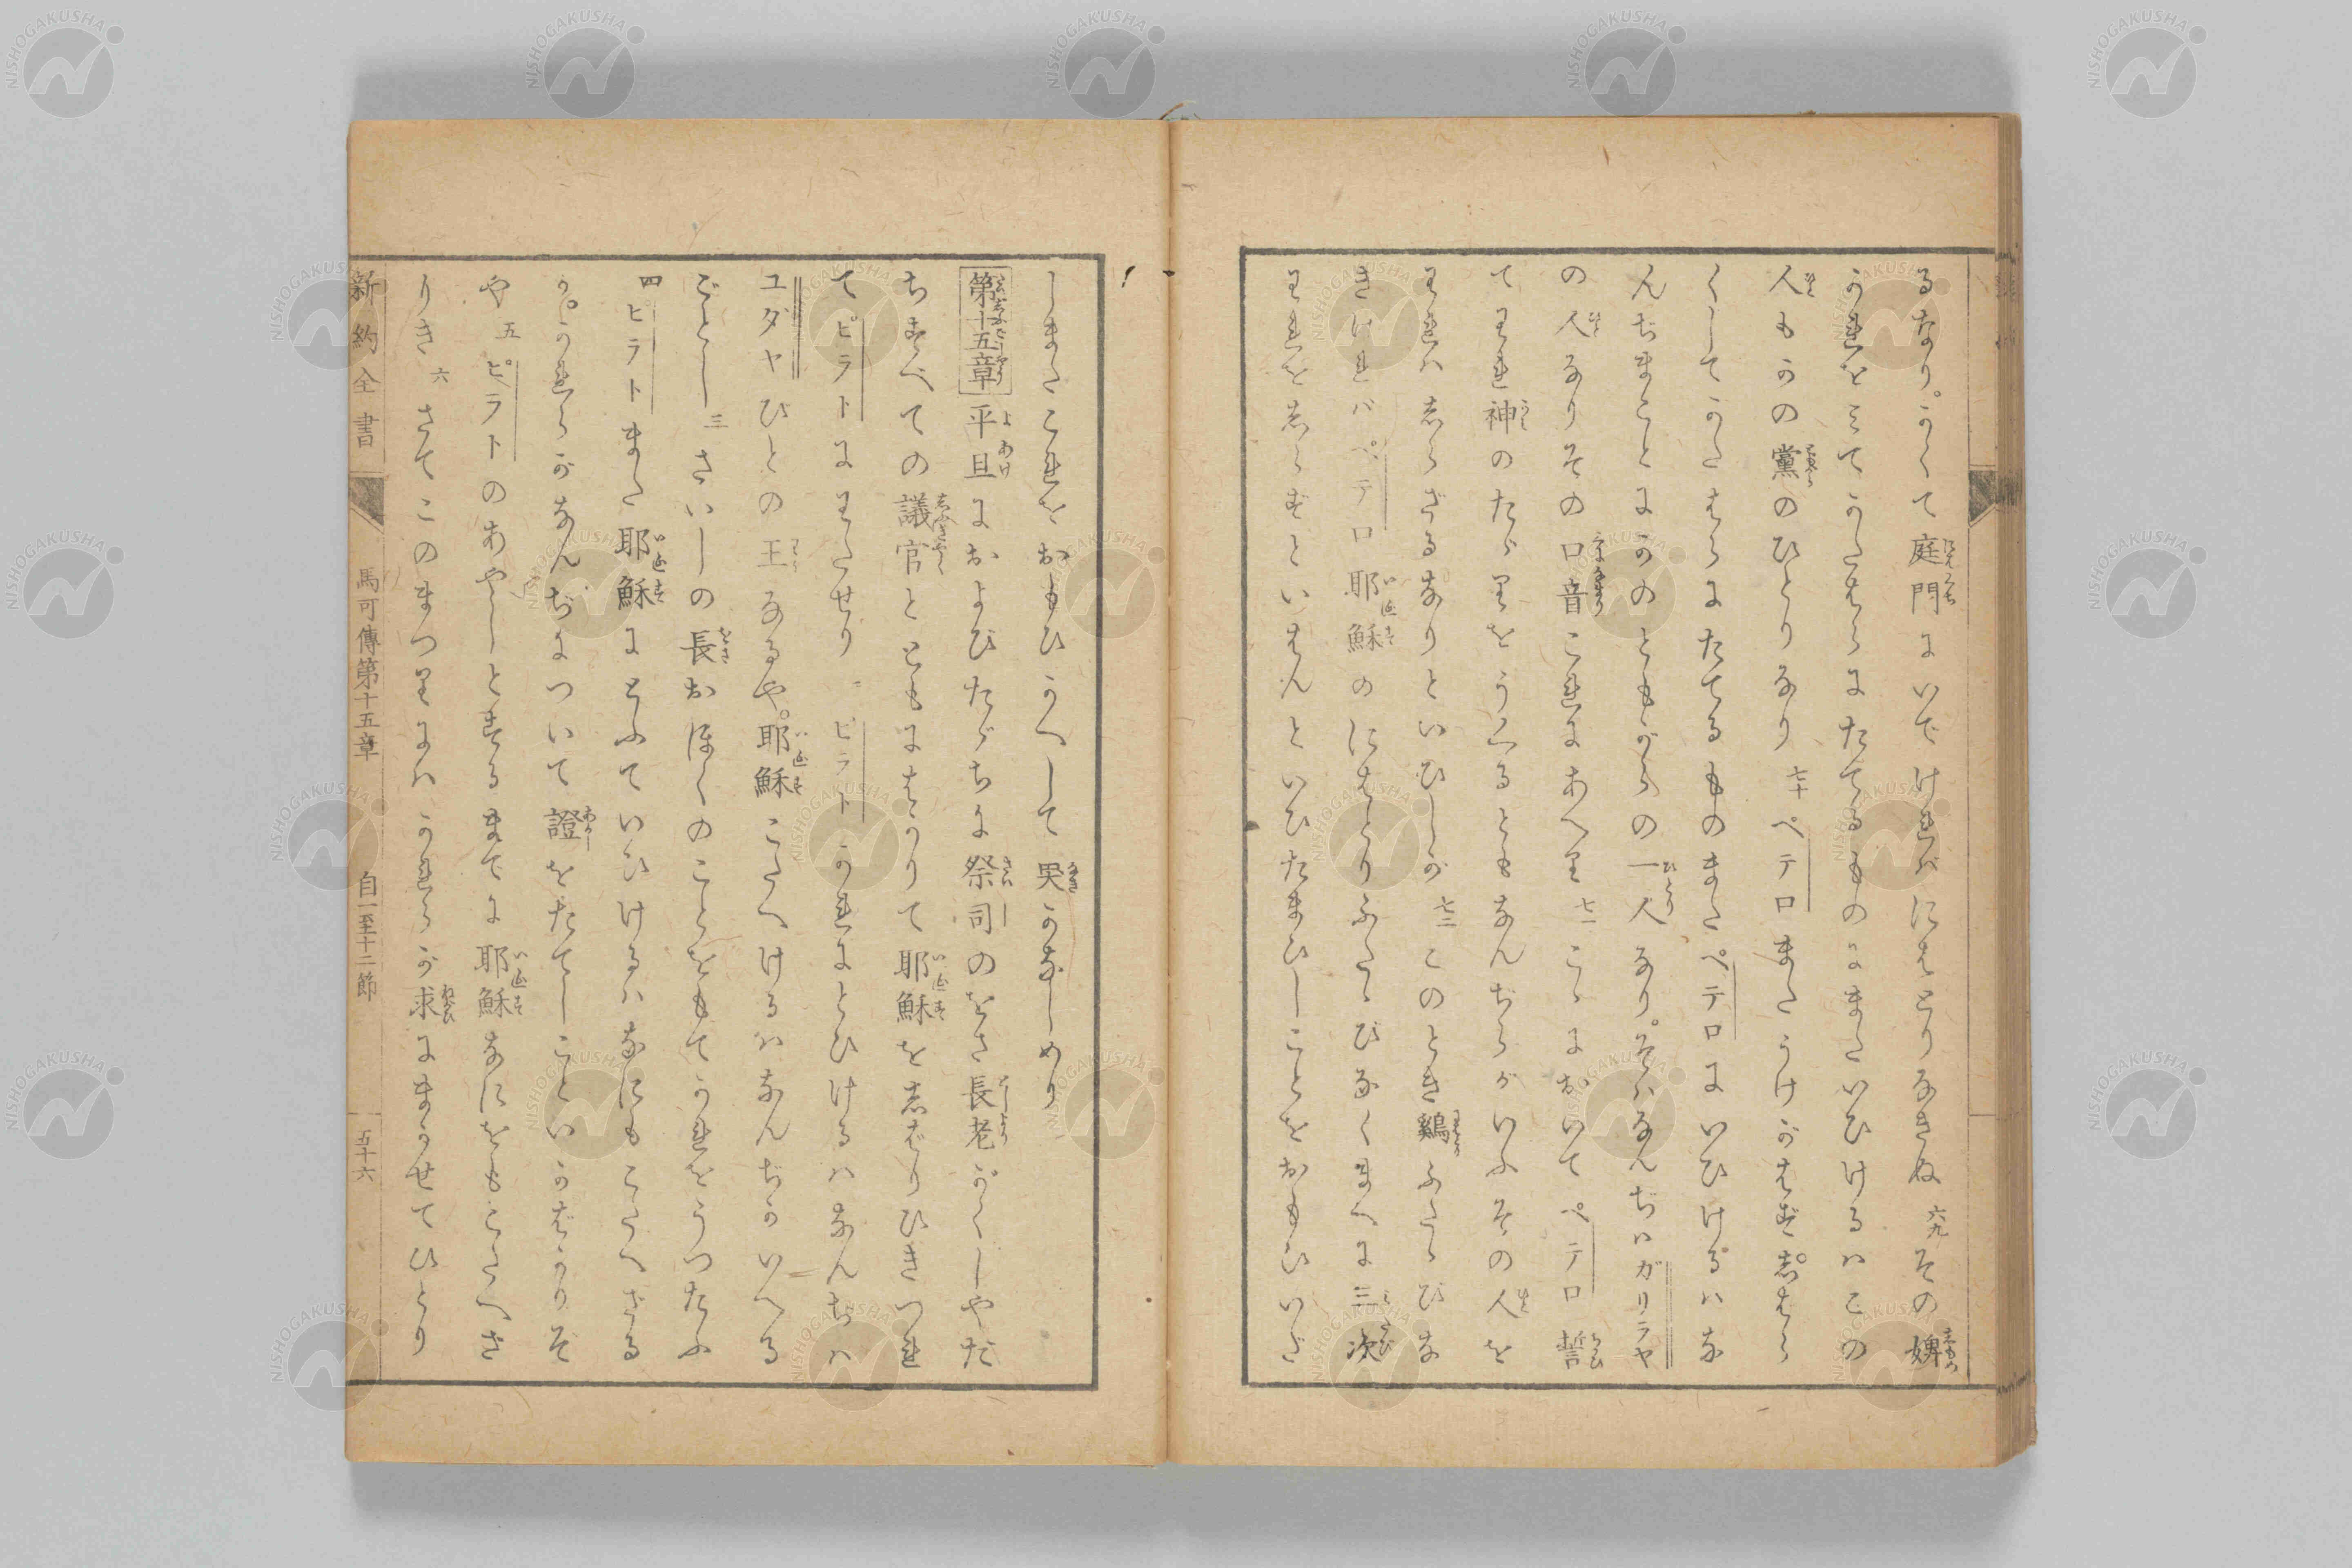 るなり。かくて庭門にいでければにはとりなきぬ 六九 その婢
かれをみてかたはらにたてるものにまたいひけるハこの
人もかの黨のひとりなり 七十 ペテロまたうけがはず。しはら
くしてかたはらにたてるものまたペテロにいひけるハな
んぢまことにかのともがらの一人なり。そハなんぢハガリラヤ
の人なりその口音これにあへり 七一 こゝにおいてペテロ誓
てわれ神のたゝりをうくるともなんぢらがいふその人を
われハしらざるなりといひしが 七二 このとき鷄ふたゝびな
きければペテロ耶穌のにはとりふたゝびなくまへに三次
われをしらずといはんといひたまひしことをおもひいだ
しまたこれをおもひかへして哭かなしめり
第十五章 平旦におよびたゞちに祭司のをさ長老がくしやだ
ちすべての議官とともにはかりて耶穌をしばりひきつれ
てピラトにわたせり 二 ピラトかれにとひけるハなんぢハ
ユダヤびとの王なるや。耶穌こたへけるハなんぢかいへる
ごとし 三 さいしの長おほくのことをもてかれをうつたふ
四 ピラトまた耶穌にとふていひけるハなにもこたへざる
か。かれらがなんぢについて證をたてしこといかばかりぞ
や 五 ピラトのあやしとするまでに耶穌なにをもこたへざ
りき 六 さてこのまつりにハかれらが求にまかせてひとり
新約全書 馬可傳第十五章 自一至十二節 五十六